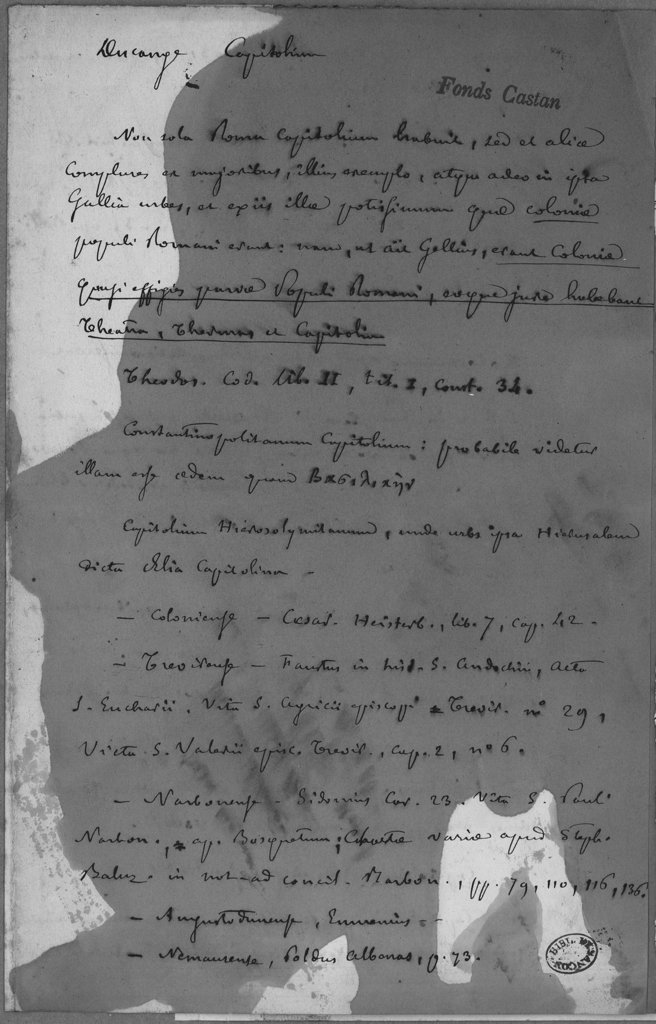 Ducange Capitolium
Fonds Castan
Non sola Roma Capitolium habuit, sed et aliæ
Complures ex majoribus, illius exemplo, atque adeo in ipsa
Gallia urbes, et ex iis illæ potissimum quæ coloniæ
populi Romani erant: nam, ut ait Gellius, erant Coloniæ
quasi effigies parvæ Populi Romani, eoque jure habebant
Theatra, Thermas et Capitolia
Theodos. Cod. lib. II, tit. I, const. 34.
Constantinopolitanum Capitolium: probabile videtur
illam esse ædem quam
Capitolium Hierosolymitanum, unde urbs ipsa Hierusalem
dicta Ælia Capitolina —
— Coloniense — Cæsar. Heisterb., lib. 7, cap. 42.
— Trevirense — Faustus in hist. S. Andochii, Acta
S. Eucharii, Vita S. Agricii episcopi Trevir. n° 29,
Vita S. Valerii episc. Trevir., cap. 2, n° 6.
— Narbonense — Sidonius Car. 23. Vita S. Pauli
Narbon., ap. Bosquetum; Chartæ variæ apud Steph.
Baluz. in not. ad concil. Narbon., pp. 79, 110, 116, 136.
— Augustodunense, Eumenius —
— Nemausense, Poldus Albenas, p. 73.
BIBL. BESANÇON